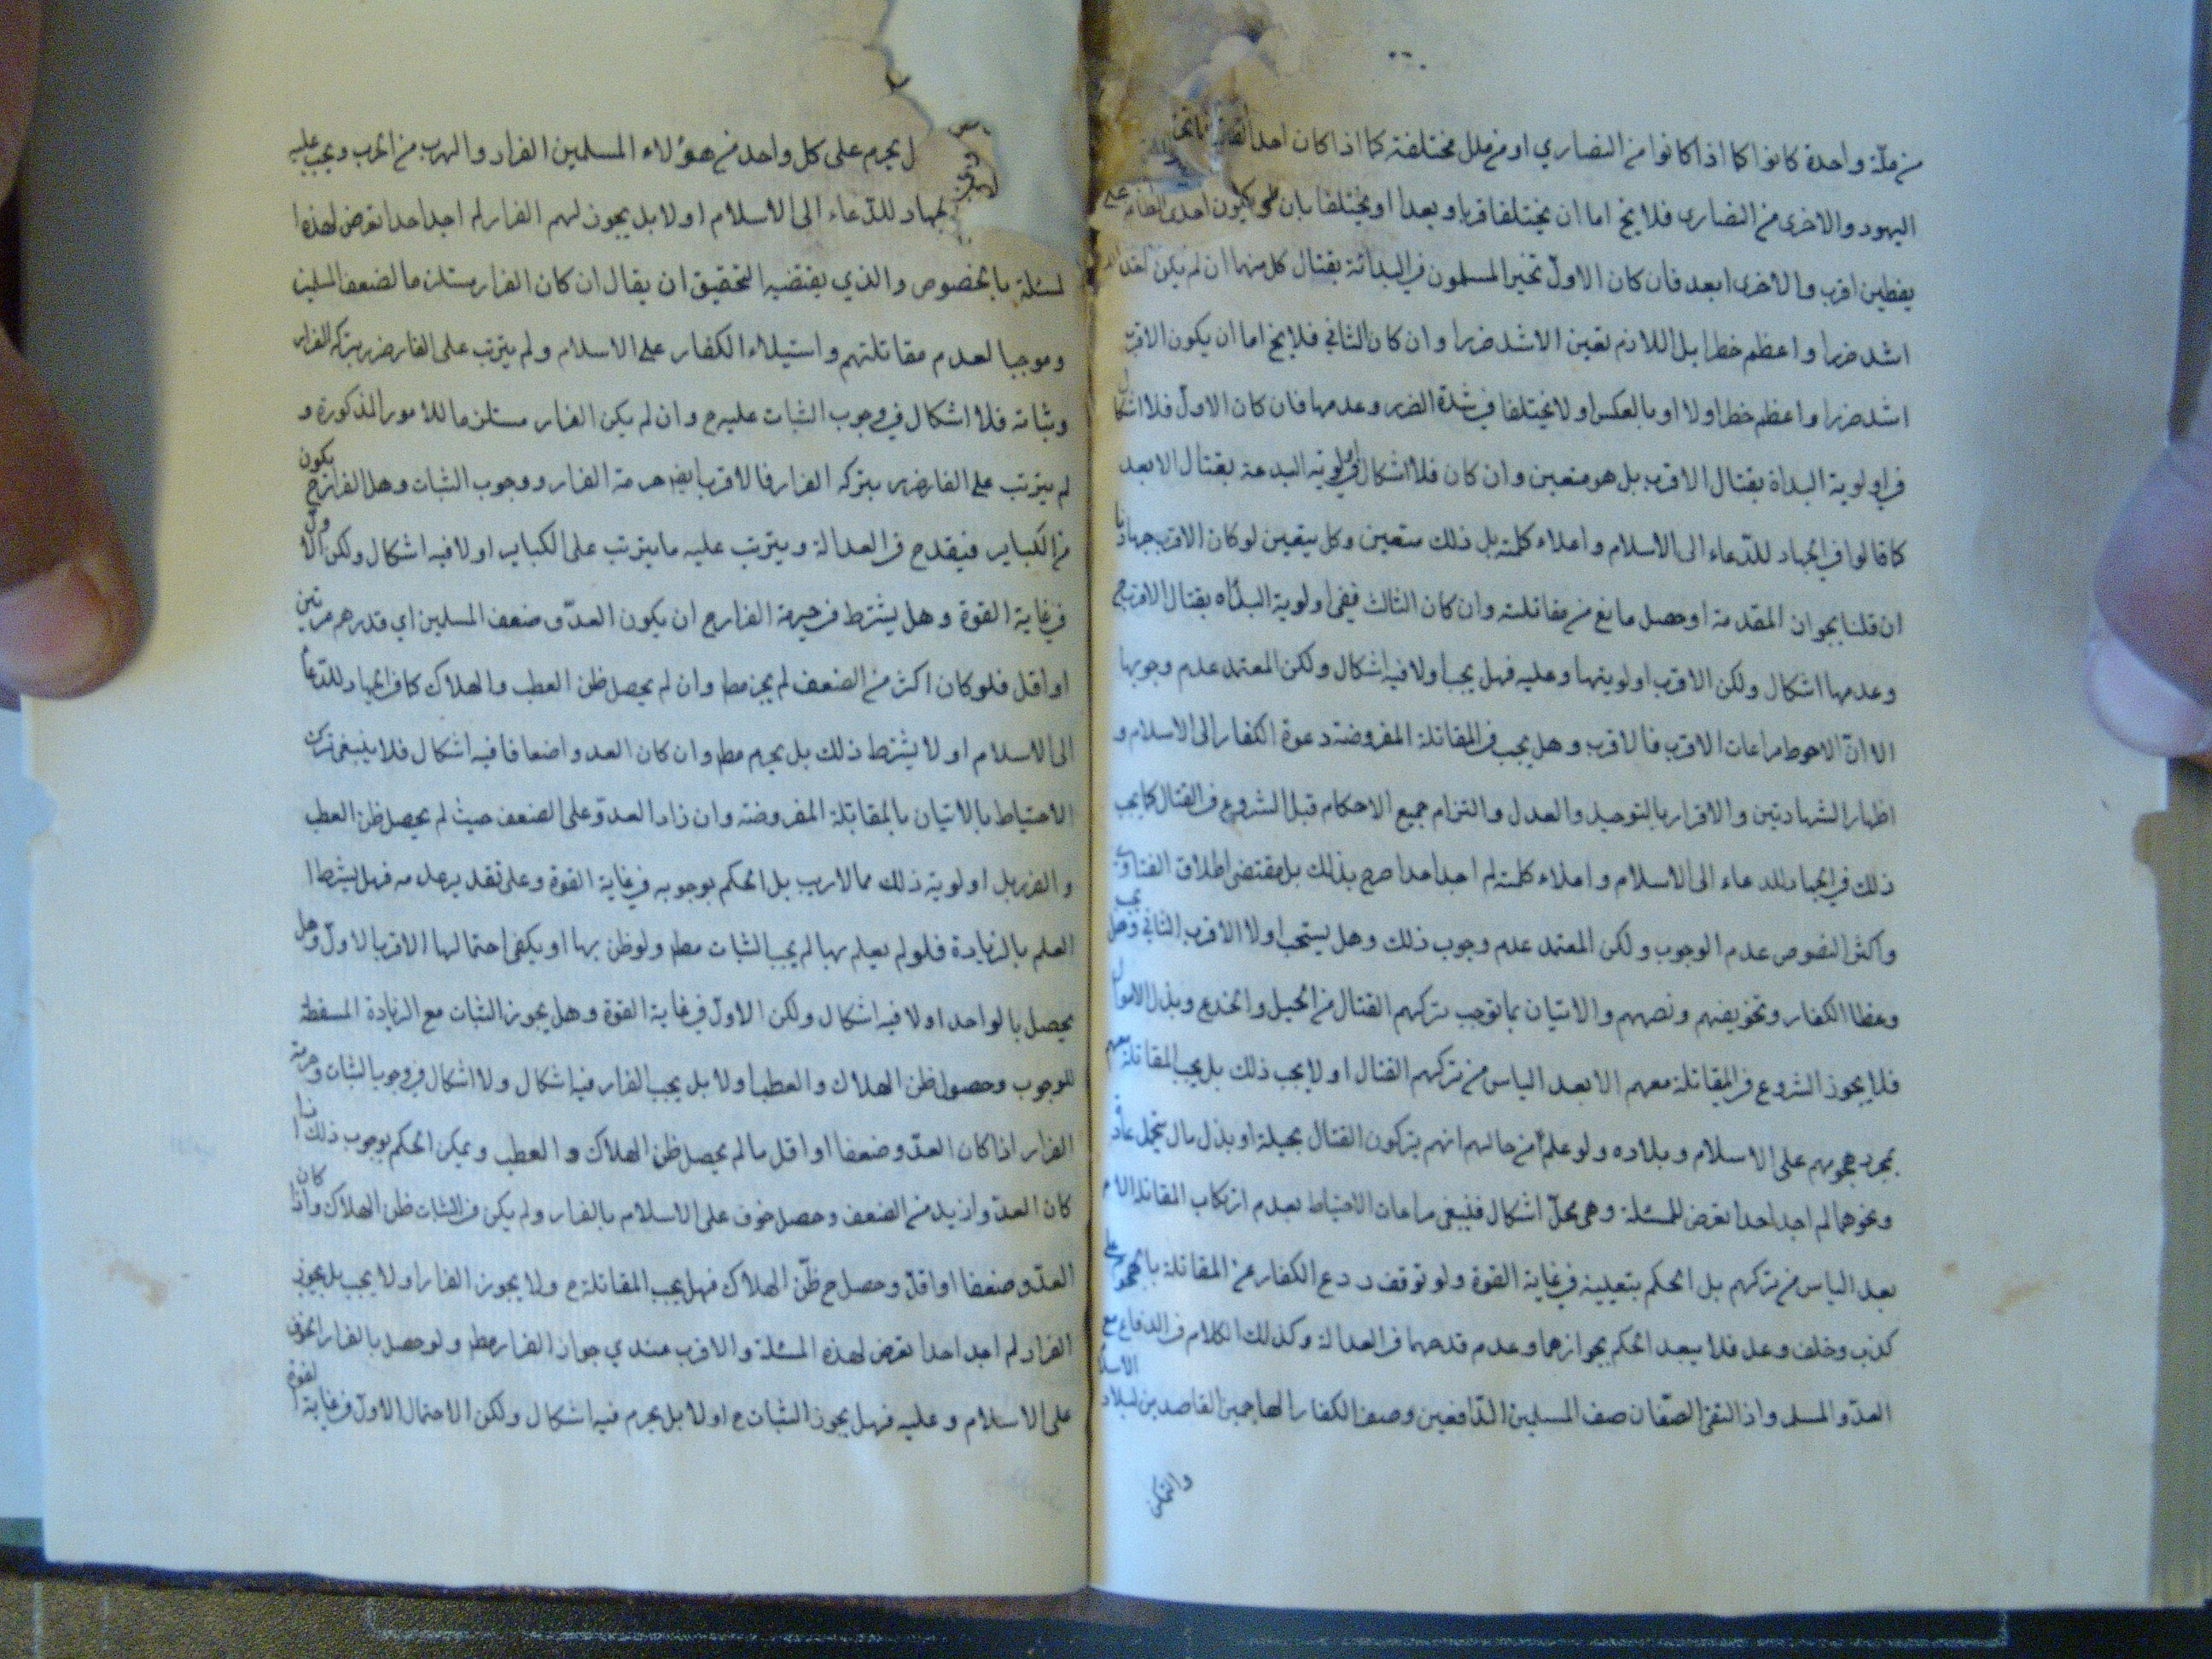 من ملة واحدة كانوا كما اذا كانوا من النصاري او من ملل مختلفة كما اذا كان احد
اليهود والاخرى من النصارى فلا يخ اما ان يختلفا قربا وبعدا او يختلفا بان يكون احدى
اقرب والاخرى ابعد فان كان الاول تخير المسلمون في البدائة بقتال كل منهما ان لم يكن
اشد ضررا واعظم خطرا بل اللازم تعين الاشد ضررا وان كان الثاني فلا يخ اما ان يكون الاقرب
اشد ضررا واعظم خطرا ولا او بالعكس او لا يختلفا في شدة الضرر وعدمها فان كان الاول فلا اشكال
في اولوية البداة بقتال الاقرب بل هو متعين وان كان فلا اشكال في اولوية البدءة بقتال الابعد
كما قالوا في الجهاد للدعاء الى الاسلام واعلاء كلمته بل ذلك متعين وكل يتعين لو كان الاقرب
ان قلنا بجوان المقدمة او حصل مانع من مقاتلته وان كان الثالث ففي اولوية البداه بقتال الاقرب ح
وعدمها اشكال ولكن الاقرب اولويتها وعليه فهل يجب اولا فيه اشكال ولكن المعتمد عدم وجوبها
الا ان الاحوط مراعات الاقرب فالاقرب وهل يجب في المقاتلة المفروضة دعوة الكفار الى الاسلام و
اظهار الشهادتين والاقرار بالتوحيد والعدل والتزام جميع الاحكام قبل الشروع في القتال كما يجب
ذلك في الجهاد للدعاء الى الاسلام واعلاء كلمته لم اجد احدا صرح بذلك بل مقتضى اطلاق الفتاوى
واكثر النصوص عدم الوجوب ولكن المعتمد عدم وجوب ذلك وهل يستحب اولا الاقرب الثاني وهل يجب
وعظ الكفار وتخويفهم ونصحهم والاتيان بما توجب تركهم القتال من الحيل والخدع وبذل الاموال
فلا يجوز الشروع في المقاتلة معهم الا بعد الياس من تركهم القتال او لا يجب ذلك بل يجب المقاتلة معهم
بمجرد هجومهم على الاسلام وبلاده ولو علم من حالهم انهم يتركون القتال بحيلة او بذل مال يتحمل عادة
ونحوهما لم اجد احدا تعرض للمسئلة وهي محل اشكال فينبغي مراعات الاحتياط بعدم ارتكاب المقاتلة الا
بعد الياس من تركهم بل الحكم بتعيينه في غاية القوة ولو توقف ردع الكفار عن المقاتلة على
كذب وخلف وعد فلا يبعد الحكم بجوازهما وعدم قدحهما في العدالة وكذلك الكلام في الدفاع مع
العدو المسلم واذا التقى الصفان صف المسلمين الدافعين وصف الكفار الهاجمين القاصدين لبلاد الاسلا
يحرم على كل واحد من هؤلاء المسلمين الفرار والهرب من الحرب ويجب عليه
للدعاء الى الاسلام اولا بل يجوز لهم الفرار لم اجد احدا تعرض لهذه ا
لمسئلة بالخصوص والذي يقتضيه التحقيق ان يقال ان كان الفرار مستلزما لضعف المسلمين
وموجبا لعدم مقاتلتهم واستيلاء الكفار على الاسلام ولم يترتب على الفار ضرر بتركه الفرار
وبثباته فلا اشكال في وجوب الثبات عليه ح وان لم يكن الفرار مستلزما للامور المذكورة و
لم يترتب على الفار ضرر بتركه الفرار فالاقرب ايضا حرمة الفرار ووجوب الثبات وهل الفرار ح يكون
من الكباير فيقدح في العدالة ويترتب عليه ما يترتب على الكباير اولا فيه اشكال ولكن الاول
في غاية القوة وهل يشترط في حرمة الفرار ح ان يكون العدو ضعف المسلمين اي قدرهم مرتين
او اقل فلو كان اكثر من الضعف لم يحرم مط وان لم يحصل ظن العطب والهلاك كما في الجهاد للدعاء
الى الاسلام او لا يشترط ذلك بل يحرم مط وان كان العدو اضعافا فيه اشكال فلا ينبغي ترك
الاحتياط بالاتيان بالمقاتلة المفروضة وان زاد العدو على الضعف حيث لم يحصل ظن العطب
والضرر بل اولوية ذلك مما لا ريب بل الحكم بوجوبه في غاية القوة وعلى تقدير عدمه فهل يشترط ا
العلم بالزيادة فلو لم يعلم بها لم يجب الثبات مط ولو ظن بها او يكفي احتمالها الاقرب الاول وهل
يحصل بالواحد اولا فيه اشكال ولكن الاول في غاية القوة وهل يجوز الثبات مع الزيادة المسقطة
للوجوب وحصول ظن الهلاك والعطب اولا بل يجب الفرار فيه اشكال ولا اشكال في وجوب الثبات وحرمة
الفرار اذا كان العدو ضعفا او اقل ما لم يحصل ظن الهلاك والعطب ويمكن الحكم بوجوب ذلك اذا
كان العدو ازيد من الضعف وحصل خوف على الاسلام بالفرار ولم يكن في الثبات ظن الهلاك واذا كان
العدو ضعفا او اقل وحصل ح ظن الهلاك فهل يجب المقاتلة ح ولا يجوز الفرار او لا يجب بل يجوز
الفرار لم اجد احدا تعرض لهذه المسئلة والاقرب عندي جواز الفرار مط ولو حصل بالفرار الخوف
على الاسلام وعليه فهل يجوز الثبات ح اولا بل يحرم فيه اشكال ولكن الاحتمال الاول في غاية القوة